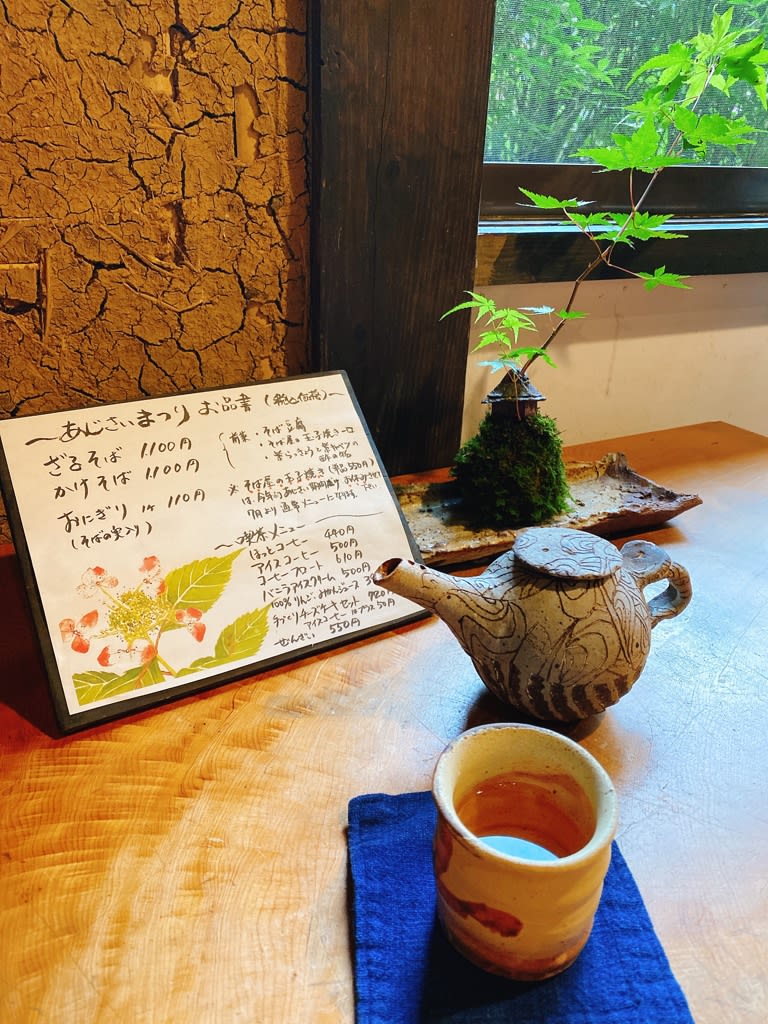 ～あじさいまつり お品書（税込価格）～
ざるそば 1,100円
かけそば 1,100円
おにぎり 1ヶ 110円
（そばの実入り）
前菜：そば豆腐
そば屋の玉子焼き一口
※そば屋の玉子焼き（単品550円）
は、今年のあじさい期間
7月より通常メニューになります。
～喫茶メニュー～
ほっとコーヒー 440円
アイスコーヒー 500円
コーヒーフロート 610円
バニラアイスクリーム 500円
100%りんご、みかんジュース
チーズケーキセット
アイスコーヒーはプラス50円
ぜんざい 550円